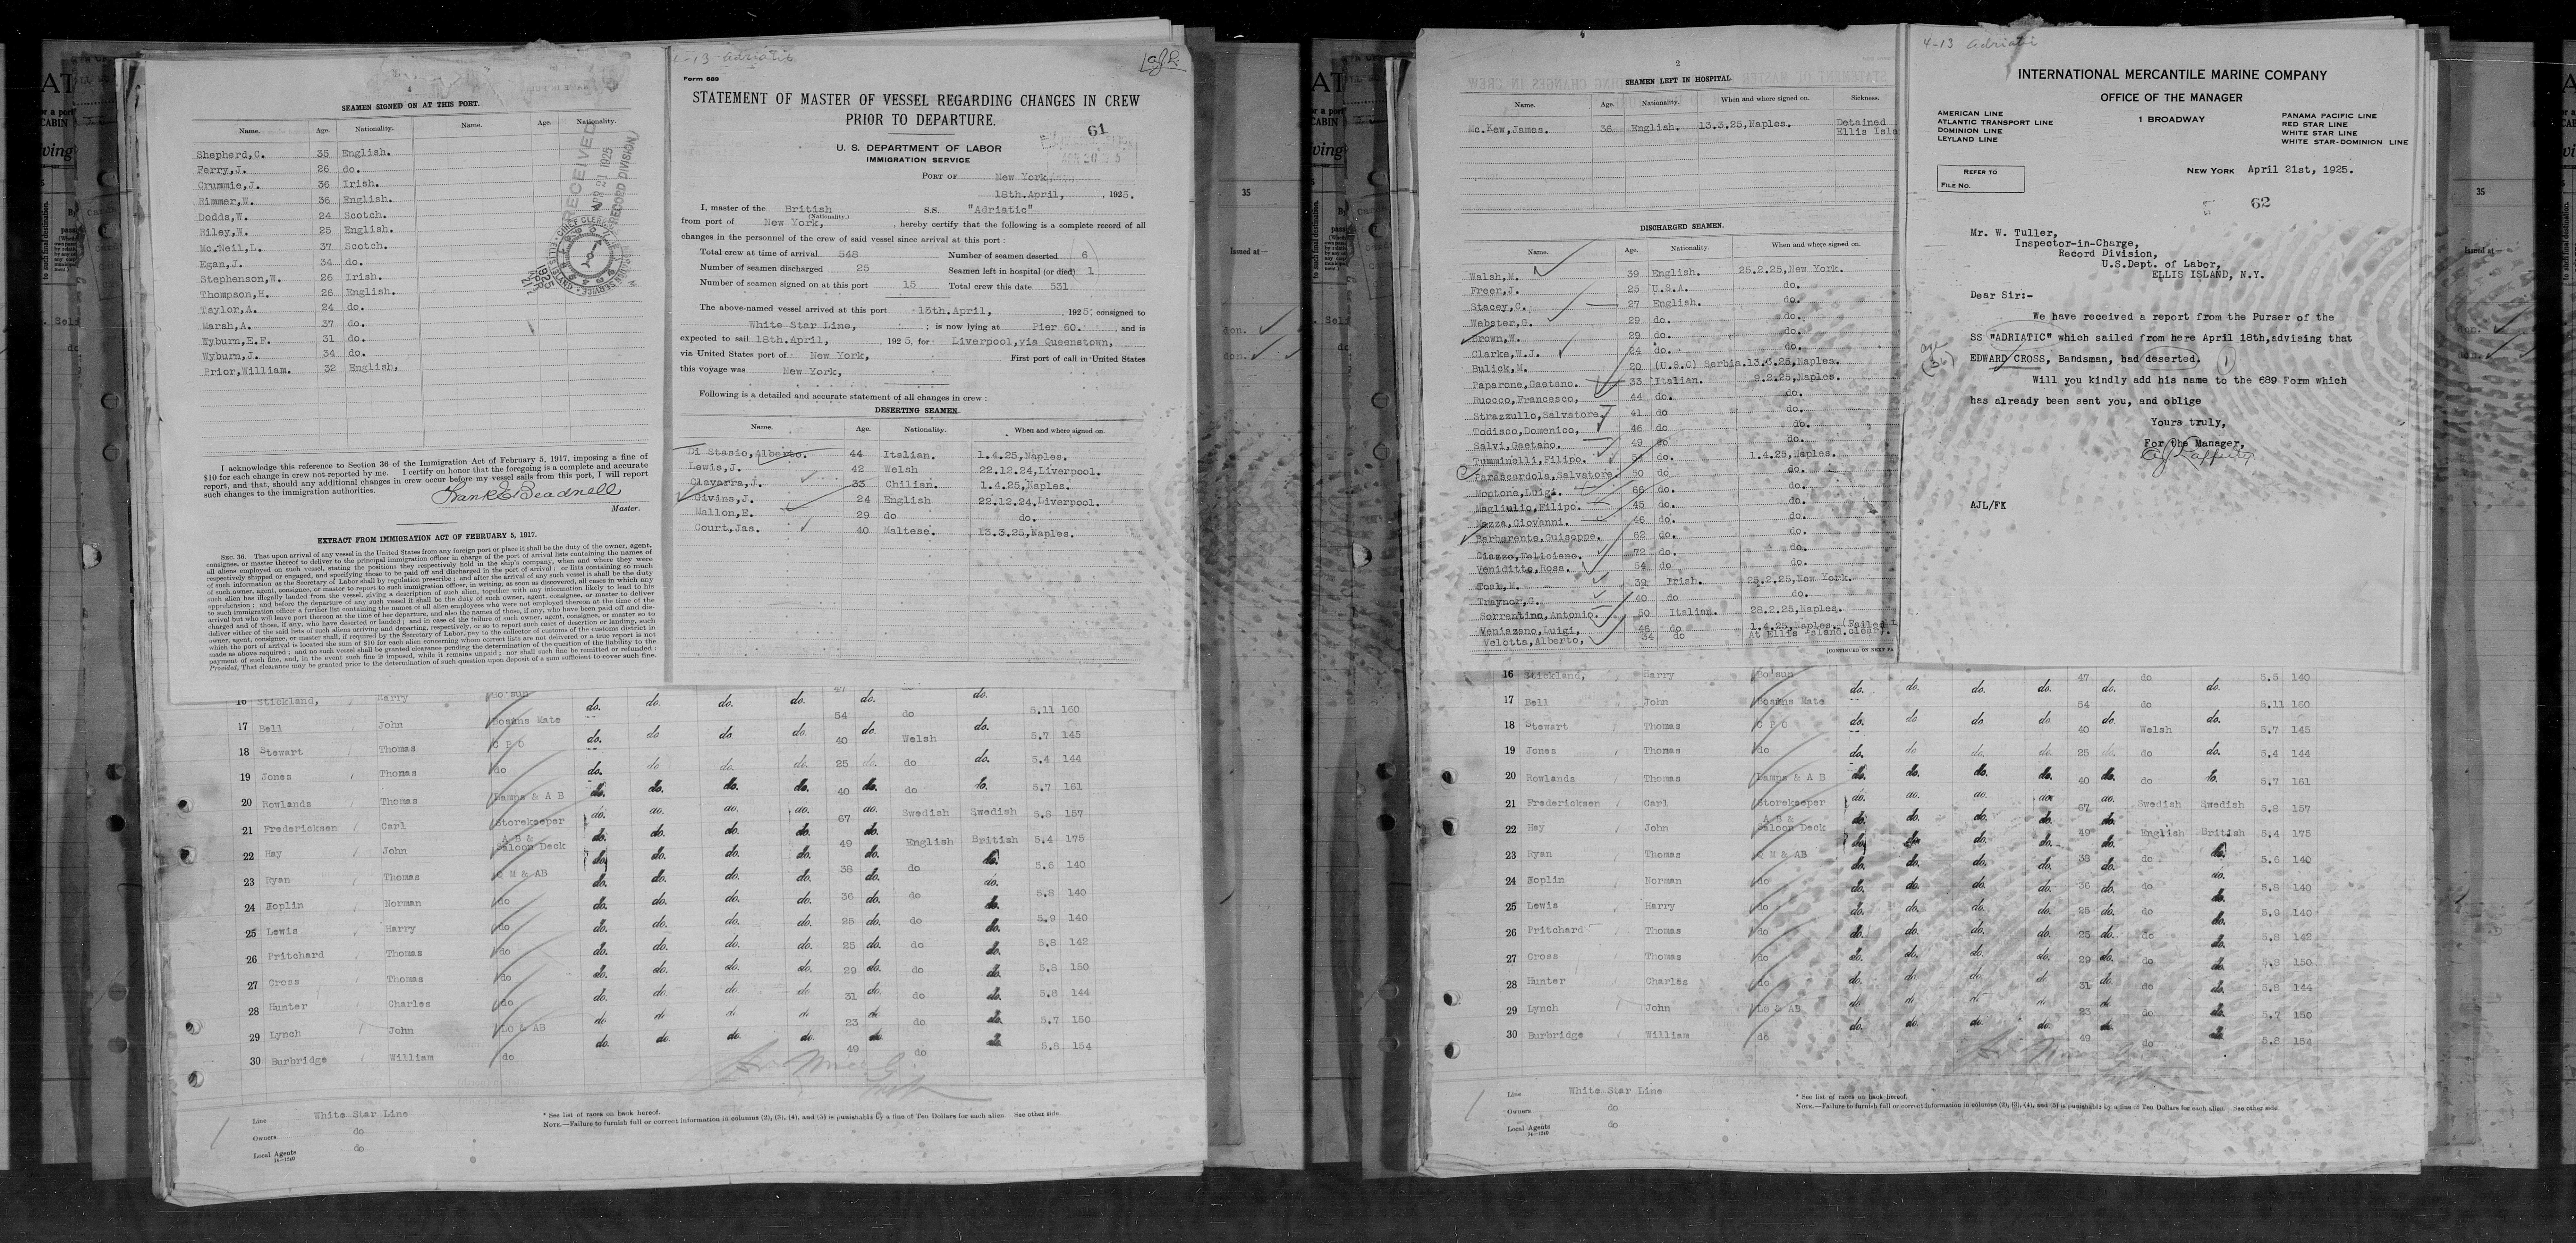 4
SEAMEN SIGNED ON AT THIS PORT.
Name. Age. Nationality. Name. Age. Nationality.
Shepherd,C. 35 English.
Ferry,J. 26 do.
Crummie,J. 36 Irish.
Rimmer,W. 36 English.
Dodds,W. 24 Scotch.
Riley,W. 25 English.
Mc.Neil,L. 37 Scotch.
Egan,J. 34 do.
Stephenson,W. 26 Irish.
Thompson,H. 26 English.
Taylor,A. 24 do.
Marsh,A. 37 do.
Wyburn,E.F. 31 do.
Wyburn,J. 34 do.
Prior,William. 32 English,
RECEIVED
APR 21 1925
RECORD DIVISION
I acknowledge this reference to Section 36 of the Immigration Act of February 5, 1917, imposing a fine of
$10 for each change in crew not reported by me. I certify on honor that the foregoing is a complete and accurate
report, and that, should any additional changes in crew occur before my vessel sails from this port, I will report
such changes to the immigration authorities.
Frank E Beadnell
Master.
EXTRACT FROM IMMIGRATION ACT OF FEBRUARY 5, 1917.
SEC. 36. That upon arrival of any vessel in the United States from any foreign port or place it shall be the duty of the owner, agent,
consignee, or master thereof to deliver to the principal immigration officer in charge of the port of arrival lists containing the names of
all aliens employed on such vessel, stating the positions they respectively hold in the ship's company, when and where they were
respectively shipped or engaged, and specifying those to be paid off and discharged in the port of arrival; or lists containing so much
of such information as the Secretary of Labor shall by regulation prescribe; and after the arrival of any such vessel it shall be the duty
of such owner, agent, consignee, or master to report to such immigration officer, in writing, as soon as discovered, all cases in which any
such alien has illegally landed from the vessel, giving a description of such alien, together with any information likely to lead to his
apprehension; and before the departure of any such vessel it shall be the duty of such owner, agent, consignee, or master to deliver
to such immigration officer a further list containing the names of all alien employees who were not employed thereon at the time of the
arrival but who will leave port thereon at the time of her departure, and also the names of those, if any, who have been paid off and dis-
charged and of those, if any, who have deserted or landed; and in case of the failure of such owner, agent, consignee, or master so to
deliver either of the said lists of such aliens arriving and departing, respectively, or so to report such cases of desertion or landing, such
owner, agent, consignee, or master shall, if required by the Secretary of Labor, pay to the collector of customs of the customs district in
which the port of arrival is located the sum of $10 for each alien concerning whom correct lists are not delivered or a true report is not
made as above required; and no such vessel shall be granted clearance pending the determination of the question of the liability to the
payment of such fine, and, in the event such fine is imposed, while it remains unpaid; nor shall such fine be remitted or refunded:
Provided, That clearance may be granted prior to the determination of such question upon deposit of a sum sufficient to cover such fine.
4-13 Adriatic
Form 689
STATEMENT OF MASTER OF VESSEL REGARDING CHANGES IN CREW
PRIOR TO DEPARTURE.
61
U. S. DEPARTMENT OF LABOR
IMMIGRATION SERVICE
PORT OF New York
18th.April, , 1925.
I, master of the British S.S. "Adriatic"
(Nationality.)
from port of New York, , hereby certify that the following is a complete record of all
changes in the personnel of the crew of said vessel since arrival at this port:
Total crew at time of arrival 548 Number of seamen deserted 6
Number of seamen discharged 25 Seamen left in hospital (or died) 1
Number of seamen signed on at this port 15 Total crew this date 531
The above-named vessel arrived at this port 13th.April, , 1925; consigned to
White Star Line, ; is now lying at Pier 60. , and is
expected to sail 18th.April, , 1925, for Liverpool,via Queenstown,
via United States port of New York, First port of call in United States
this voyage was New York,
Following is a detailed and accurate statement of all changes in crew:
DESERTING SEAMEN.
Name. Age. Nationality. When and where signed on.
Di Stasio,Alberto. 44 Italian. 1.4.25,Naples.
Lewis,J. 42 Welsh 22.12.24,Liverpool.
Clavarra,J. 33 Chilian. 1.4.25,Naples.
Givins,J. 24 English 22.12.24,Liverpool.
Mallon,E. 29 do do.
Court,Jas. 40 Maltese. 13.3.25,Naples.
16 Stickland, Harry Bo'sun do. do. do. do. 47 do. do do.
17 Bell John Bosuns Mate do. do do. do. 54 do. do do. 5.11 160
18 Stewart Thomas Q P O do. do do. do. 40 do. Welsh do. 5.7 145
19 Jones Thomas do do. do. do. do. 25 do. do do. 5.4 144
20 Rowlands Thomas Lamps & A B do. do. do. do. 40 do. do do. 5.7 161
21 Fredericksen Carl Storekeeper do. do. do. do. 67 do. Swedish Swedish 5.8 157
22 Hay John A B & Saloon Deck do. do. do. do. 49 do. English British 5.4 175
23 Ryan Thomas Q M & AB do. do. do. do. 38 do. do do. 5.6 140
24 Joplin Norman do do. do. do. do. 36 do. do do. 5.8 140
25 Lewis Harry do do. do. do. do. 25 do. do do. 5.9 140
26 Pritchard Thomas do do. do. do. do. 25 do. do do. 5.8 142
27 Cross Thomas do do. do. do. do. 29 do. do do. 5.8 150
28 Hunter Charles do do. do. do. do. 31 do. do do. 5.8 144
29 Lynch John LO & AB do. do. do. do. 23 do. do do. 5.7 150
30 Burbridge William do do. do. do. do. 49 do. do do. 5.8 154
Line White Star Line
Owners do
Local Agents do
14—1240
* See list of races on back hereof.
NOTE.—Failure to furnish full or correct information in columns (2), (3), (4), and (5) is punishable by a fine of Ten Dollars for each alien. See other side.
2
SEAMEN LEFT IN HOSPITAL.
Name. Age. Nationality. When and where signed on. Sickness.
Mc.Kew,James. 36 English. 13.3.25,Naples. Detained
Ellis Isla
DISCHARGED SEAMEN.
Name. Age. Nationality. When and where signed on.
Walsh,M. 39 English. 25.2.25,New York.
Freer,J. 25 U.S.A. do.
Stacey,C. 27 English. do.
Webster,G. 29 do. do.
Brown,W. 29 do. do.
Clarke,W.J. 24 do. do.
Bulick,M. 20 (U.S.C) Serbia.13.3.25,Naples.
Paparone,Gaetano. 33 Italian. 9.2.25,Naples.
Ruocco,Francesco, 44 do. do.
Strazzullo,Salvatore, 41 do do.
Todisco,Domenico, 46 do do.
Salvi,Gaetano. 49 do do.
Tumminelli,Filipo. do. 1.4.25,Naples.
Parascardola,Salvatore. 50 do. do.
Montone,Luigi. 66 do. do.
Magliulio,Filipo. 45 do. do.
Mazza,Giovanni. 46 do. do.
Barbarente,Guiseppe. 62 do. do.
Ciazzo,Feliciano. 72 do. do.
Veniditto,Ross. 54 do do.
Toal,M. 39 Irish. 25.2.25,New York.
Traynor,C. 40 do do.
Sorrentino,Antonio. 50 Italian. 28.2.25,Naples.
Veniazano,Luigi, 46 do 1.4.25,Naples.(Failed
Velotta,Alberto, 34 do At Ellis Island.clear).
[CONTINUED ON NEXT PA
4-13 Adriatic
INTERNATIONAL MERCANTILE MARINE COMPANY
OFFICE OF THE MANAGER
1 BROADWAY
AMERICAN LINE
ATLANTIC TRANSPORT LINE
DOMINION LINE
LEYLAND LINE
PANAMA PACIFIC LINE
RED STAR LINE
WHITE STAR LINE
WHITE STAR-DOMINION LINE
REFER TO
FILE NO.
NEW YORK April 21st, 1925.
62
Mr. W. Tuller,
Inspector-in-Charge,
Record Division,
U.S.Dept. of Labor,
ELLIS ISLAND, N.Y.
Dear Sir:-
We have received a report from the Purser of the
SS "ADRIATIC" which sailed from here April 18th,advising that
EDWARD CROSS, Bandsman, had deserted. 1
age (36)
Will you kindly add his name to the 689 Form which
has already been sent you, and oblige
Yours truly,
For the Manager,
AJL/FK
16 Stickland, Harry Bo'sun do. do. do. do. 47 do. do do. 5.5 140
17 Bell John Bosuns Mate do. do do. do. 54 do. do do. 5.11 160
18 Stewart Thomas Q P O do. do do. do. 40 do. Welsh do. 5.7 145
19 Jones Thomas do do. do do. do. 25 do. do do. 5.4 144
20 Rowlands Thomas Lamps & A B do. do. do. do. 40 do. do do. 5.7 161
21 Fredericksen Carl Storekeeper do. do. do. do. 67 do. Swedish Swedish 5.8 157
22 Hay John A B & Saloon Deck do. do. do. do. 49 do. English British 5.4 175
23 Ryan Thomas Q M & AB do. do. do. do. 38 do. do do. 5.6 140
24 Joplin Norman do do. do. do. do. 36 do. do do. 5.8 140
25 Lewis Harry do do. do. do. do. 25 do. do do. 5.9 140
26 Pritchard Thomas do do. do. do. do. 25 do. do do. 5.8 142
27 Cross Thomas do do. do. do. do. 29 do. do do. 5.8 150
28 Hunter Charles do do. do. do. do. 31 do. do do. 5.8 144
29 Lynch John LO & AB do. do. do. do. 23 do. do do. 5.7 150
30 Burbridge William do do. do. do. do. 49 do. do do. 5.8 154
Line White Star Line
Owners do
Local Agents do
14—1240
* See list of races on back hereof.
NOTE.—Failure to furnish full or correct information in columns (2), (3), (4), and (5) is punishable by a fine of Ten Dollars for each alien. See other side.